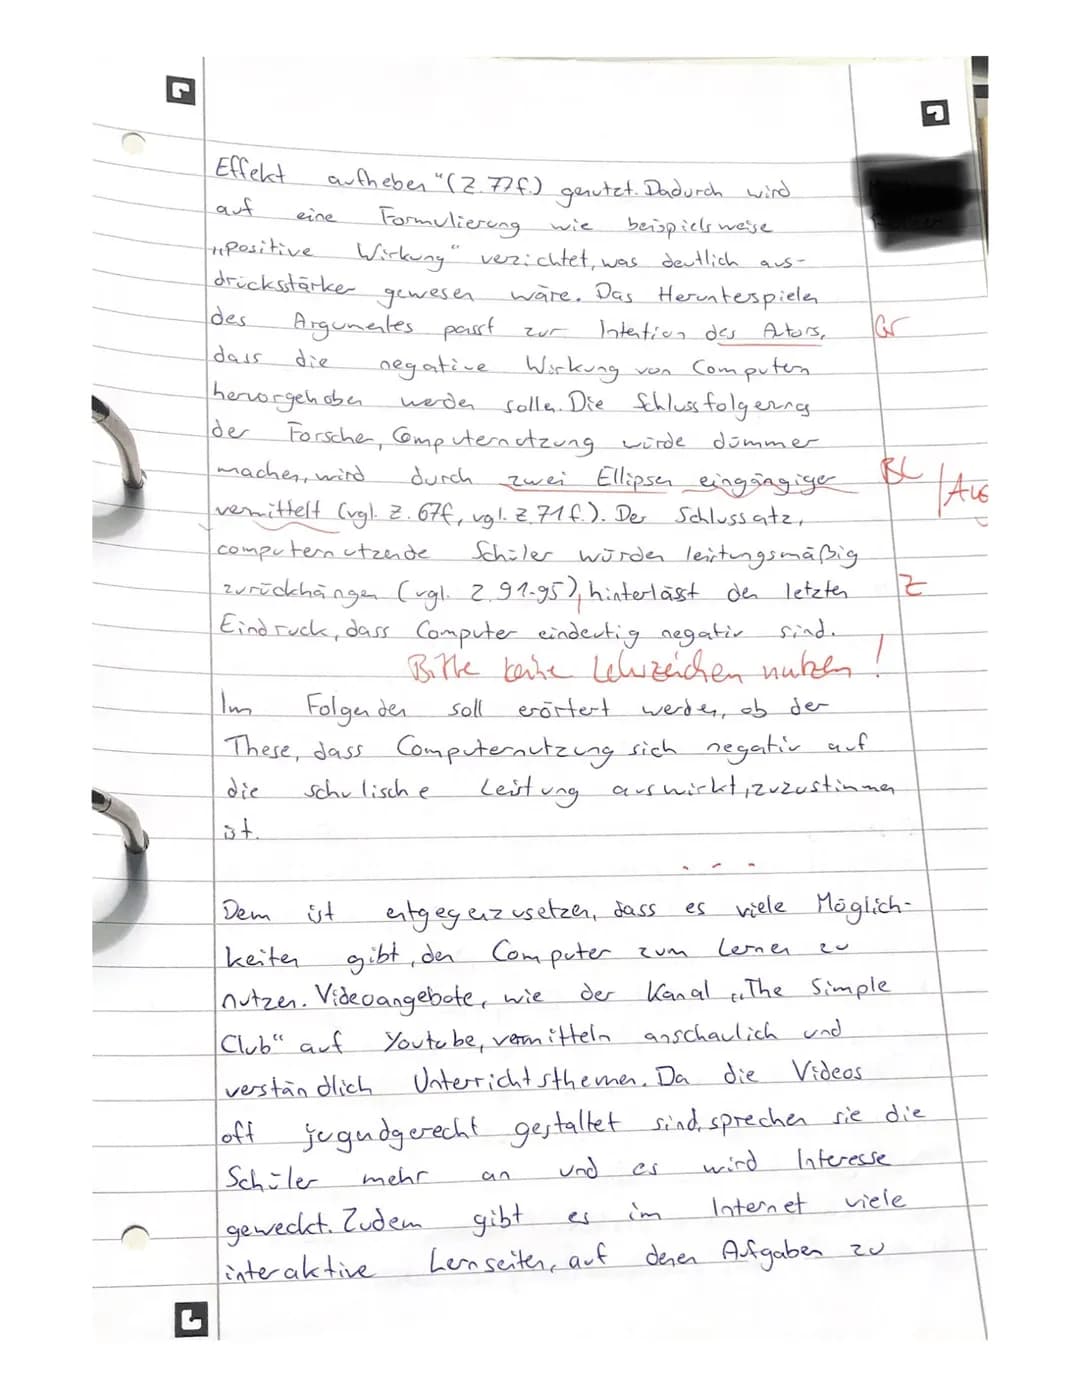 Effekt aufheben" (Z. 77f.) genutzt. Dadurch wird
auf eine Formulierung wie beispielsweise
„positive Wirkung" verzichtet, was deutlich aus-
drucksstärker gewesen wäre. Das Herunterspielen
des Argumentes passt zur Intention des Autors, Gr
dass die negative Wirkung von Computern
hervorgehoben werden sollen. Die Schlussfolgerung
der Forscher, Computernutzung würde dümmer
machen, wird durch zwei Ellipsen eingängiger
vermittelt (vgl. Z. 67f, vgl. Z. 71f.). Der Schlusssatz,
computernutzende Schüler würden leistungsmäßig
zurückhängen (vgl. Z. 91-95), hinterlässt den letzten Z
Eindruck, dass Computer eindeutig negativ sind.
Bitte keine Leerzeichen nutzen!
Im Folgenden soll erörtert werden, ob der
These, dass Computernutzung sich negativ auf
die schulische Leistung auswirkt, zuzustimmen
ist.
...
Dem ist entgegenzusetzen, dass es viele Möglich-
keiten gibt, den Computer zum Lernen zu
nutzen. Videoangebote, wie der Kanal „The Simple
Club" auf Youtube, vermitteln anschaulich und
verständlich Unterrichtsthemen. Da die Videos
oft jugendgerecht gestaltet sind, sprechen sie die
Schüler mehr an und es wird Interesse
geweckt. Zudem gibt es im Internet viele
interaktive Lernseiten, auf denen Aufgaben zu